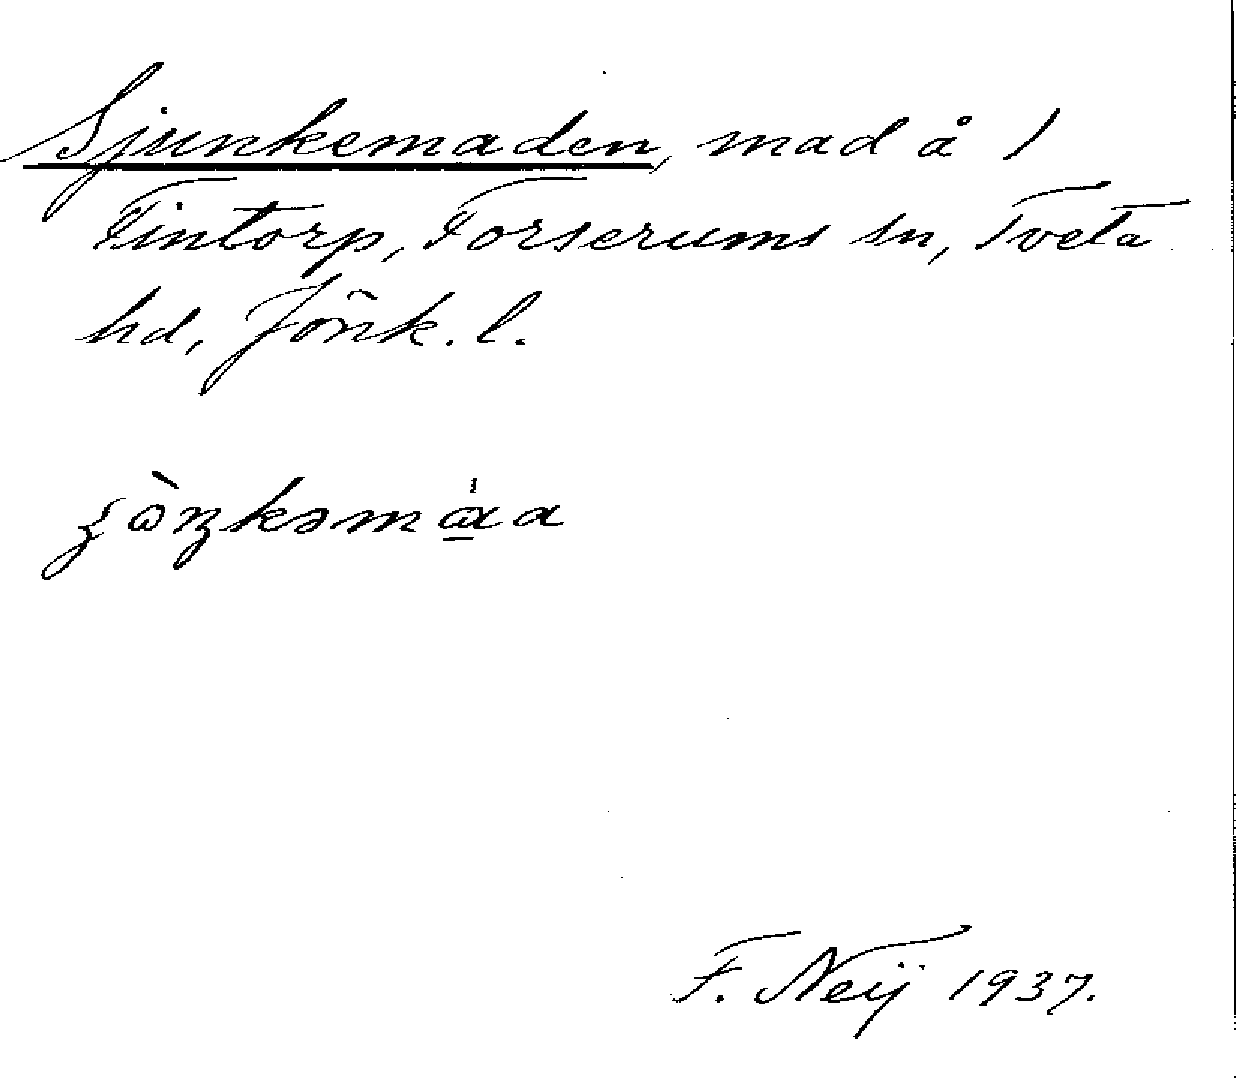 Sjunkemaden, mad å 1
Fintorp, Forserums sn, Tveta
hd, Jönk. l.
F. Neij 1937.